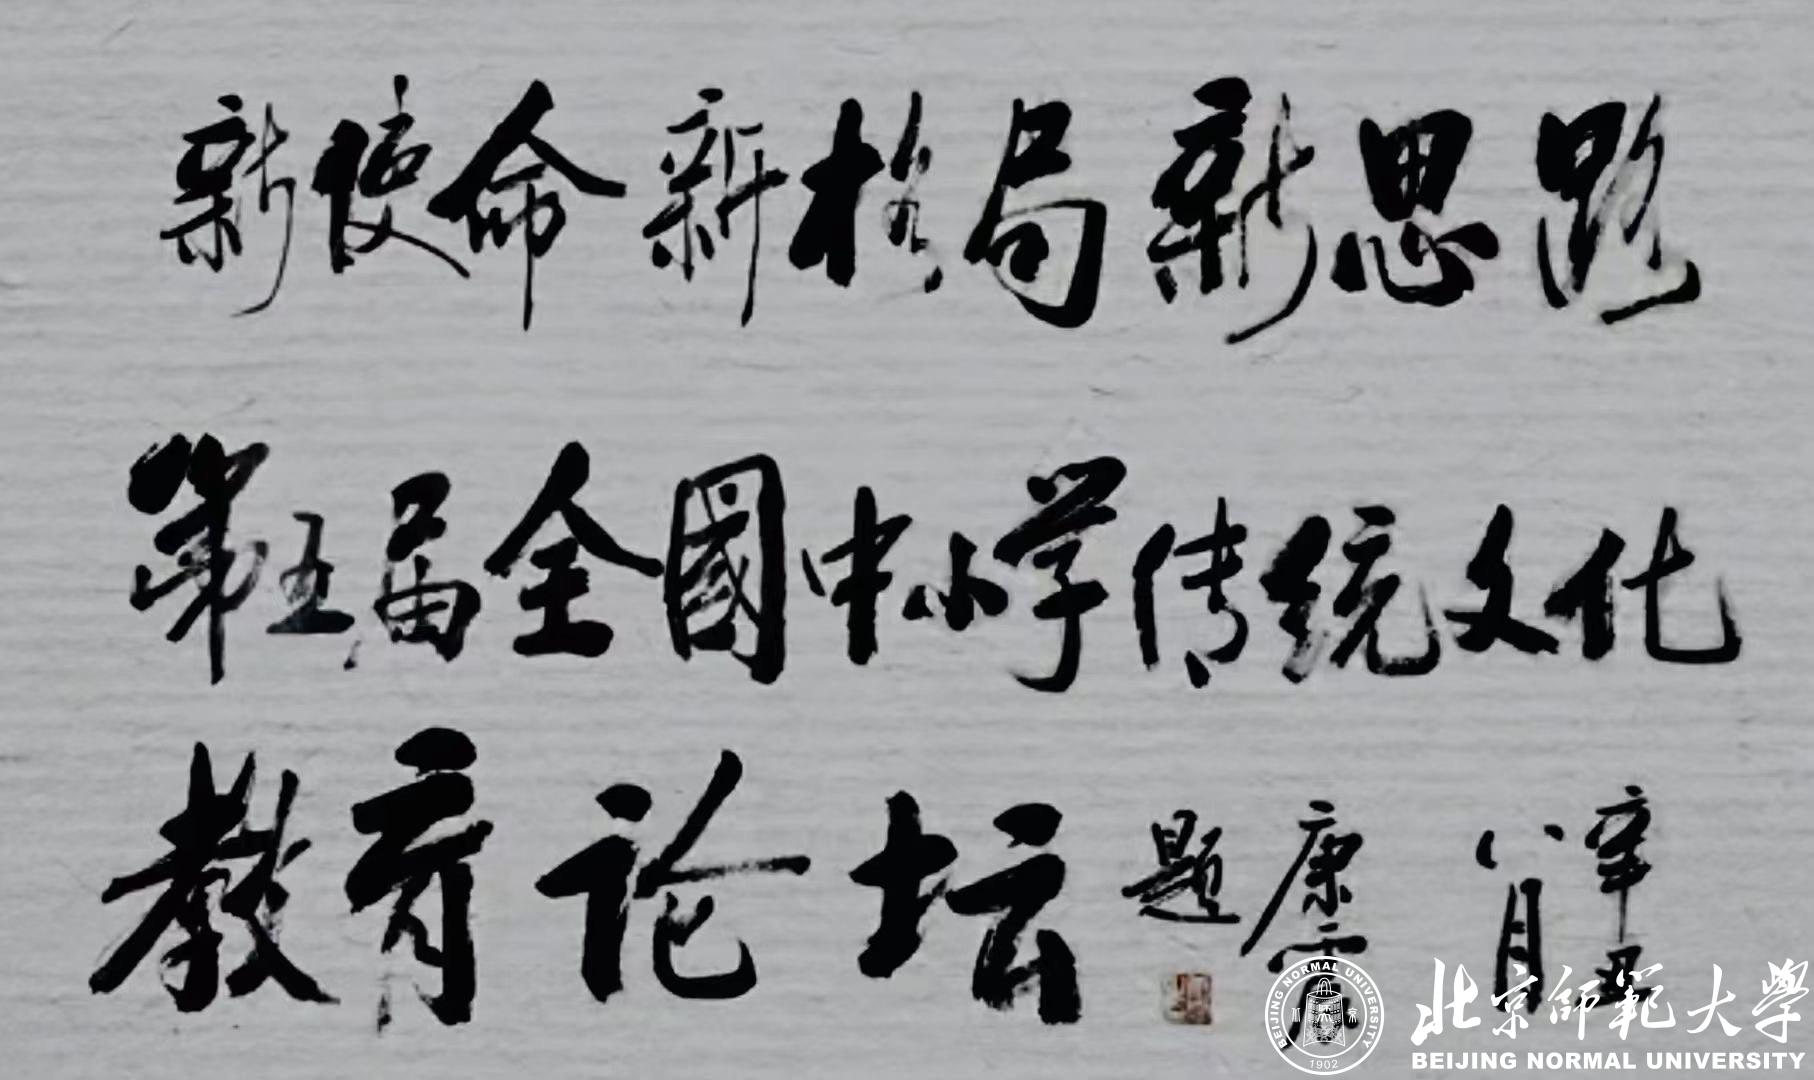 新使命 新格局 新思路
第五届全國中小学传统文化
教育论坛
辛丑
八月
康震
题
BEIJING NORMAL UNIVERSITY
1902
北京师範大学
BEIJING NORMAL UNIVERSITY